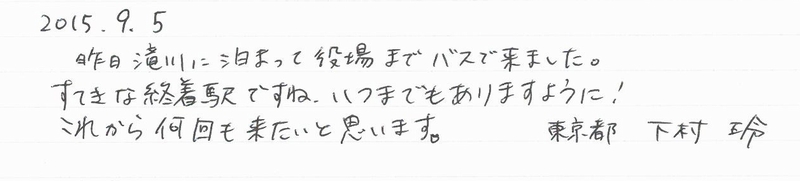 2015.9.5
昨日滝川に泊まって役場までバスで来ました。
すてきな終着駅ですね。いつまでもありますように!
これから何回も来たいと思います。 東京都 下村 玲